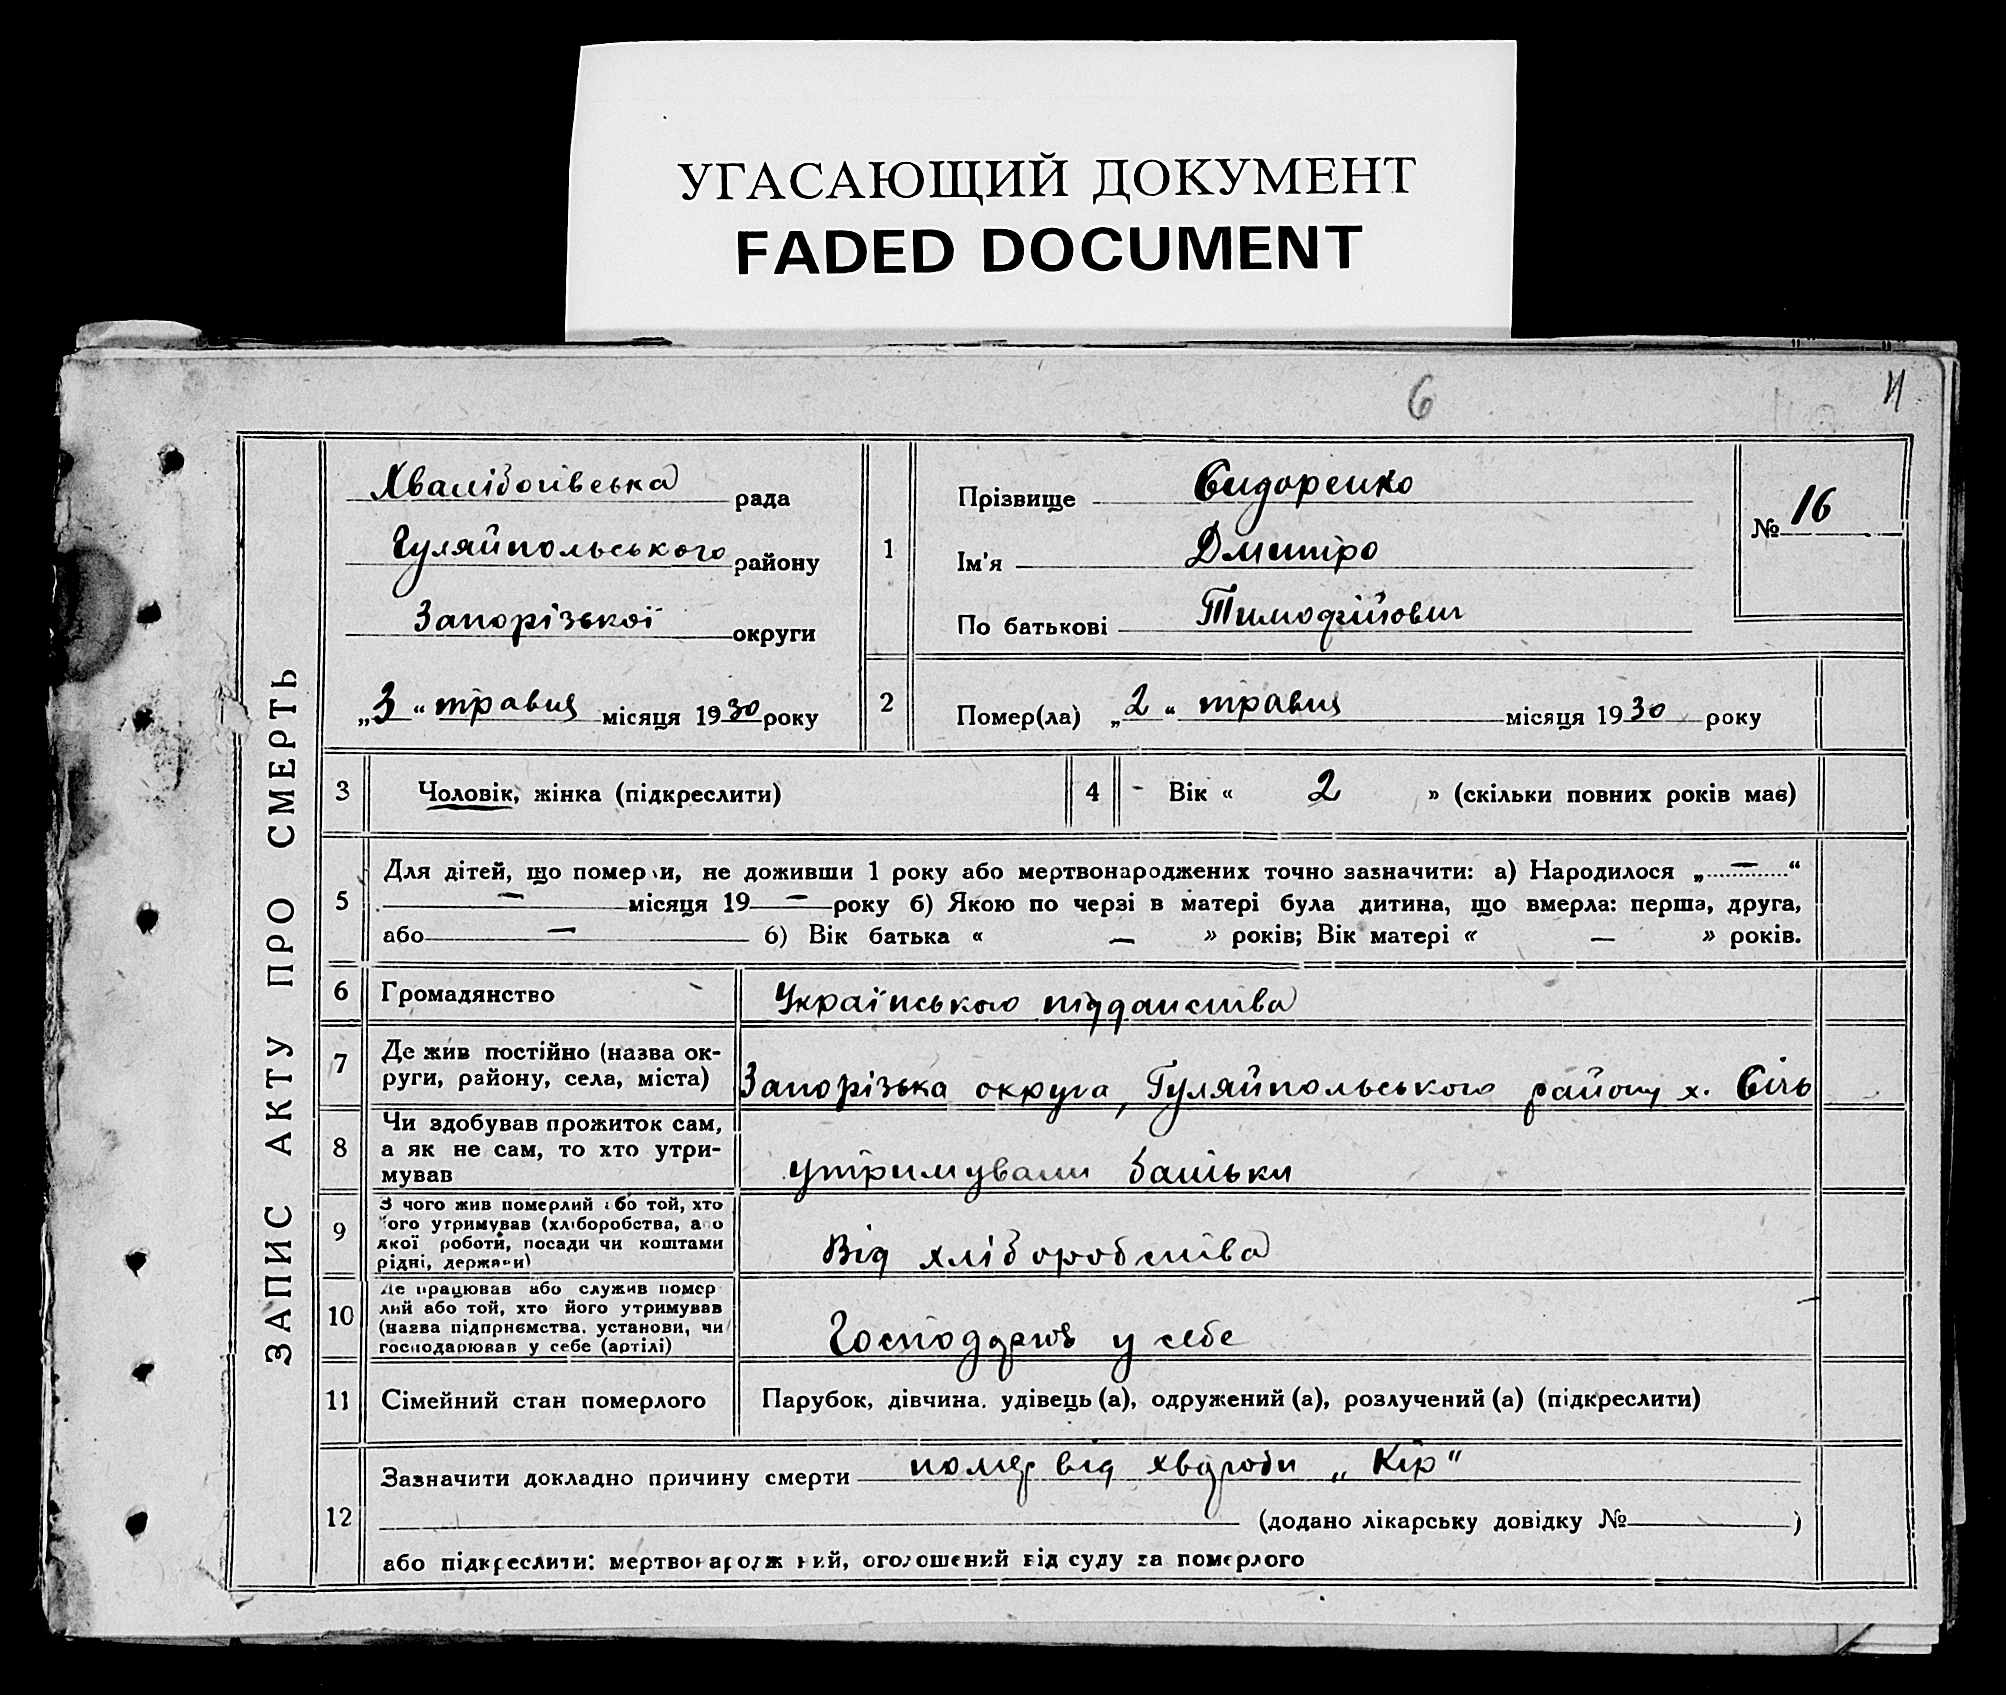 УГАСАЮЩИЙ ДОКУМЕНТ
FADED DOCUMENT
6
ЗАПИС АКТУ ПРО СМЕРТЬ
Хвалібогівська рада
Гуляйпольського району
Запорізької округи
„3“ травня місяця 1930 року
1
Прізвище Сидоренко
Ім'я Дмитро
По батькові Тимофійович
№ 16
2
Помер(ла) „2“ травня місяця 1930 року
3 Чоловік, жінка (підкреслити)
4 Вік « 2 » (скільки повних років має)
5
Для дітей, що померли, не доживши 1 року або мертвонароджених точно зазначити: а) Народилося „—“
— місяця 19— року б) Якою по черзі в матері була дитина, що вмерла: перша, друга,
або — б) Вік батька « — » років; Вік матері « — » років.
6 Громадянство Українського підданства
7
Де жив постійно (назва ок-
руги, району, села, міста)
Запорізька округа, Гуляйпольського району х. Січь
8
Чи здобував прожиток сам,
а як не сам, то хто утри-
мував
утримували батьки
9
З чого жив померлий або той, хто
його утримував (хліборобства, або
якої роботи, посади чи коштами
рідні, держави)
Від хліборобства
10
Де працював або служив помер
лий або той, хто його утримував
(назва підприємства, установи, чи
господарював у себе (артілі)
Господарюв у себе
11 Сімейний стан померлого Парубок, дівчина. удівець (а), одружений (а), розлучений (а) (підкреслити)
12
Зазначити докладно причину смерти помер від хвороби „Кір"
(додано лікарську довідку № )
або підкреслити: мертвонароджений, оголошений від суду за померлого